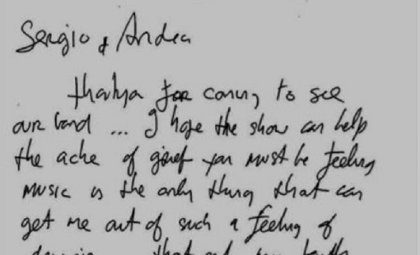 Sergio & Andrea
thankya for coming to see
our band ... I hope the show can help
the ache of grief you must be feeling
music is the only thing that can
get me out of such a feeling of
that